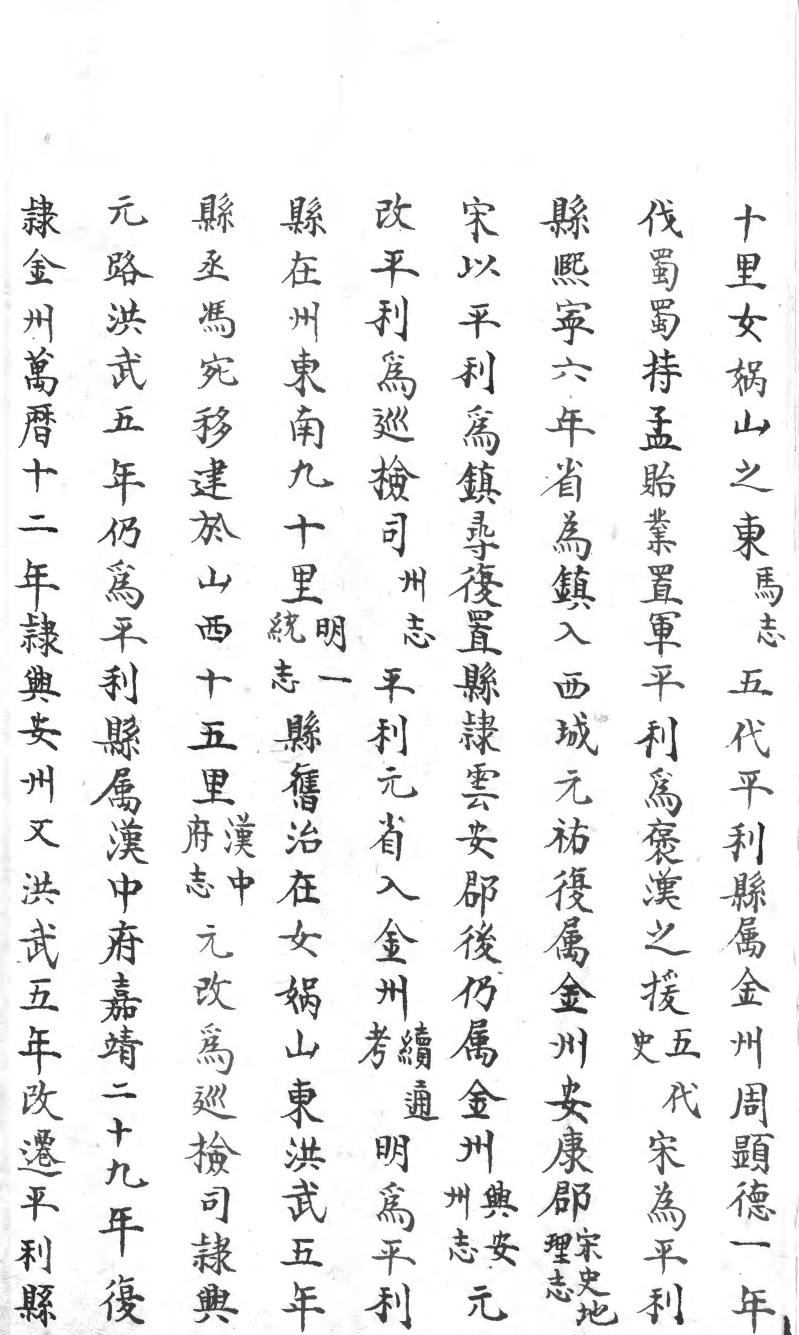 十里女媧山之東馬志五代平利縣属金州周顕德一年
伐蜀蜀持孟貽業置軍平利為褒漢之援五代史宋為平利
縣熙寧六年省為鎮入西城元祐復属金州安康郡宋史地理志
宋以平利為鎮尋復置縣隷雲安郡後仍属金州興安州志元
改平利為巡檢司州志平利元省入金州續通考明為平利
縣在州東南九十里明一統志縣舊治在女媧山東洪武五年
縣丞馮宛移建於山西十五里漢中府志元改為巡檢司隷興
元路洪武五年仍為平利縣属漢中府嘉靖二十九年復
隷金州萬暦十二年隷興安州又洪武五年改遷平利縣